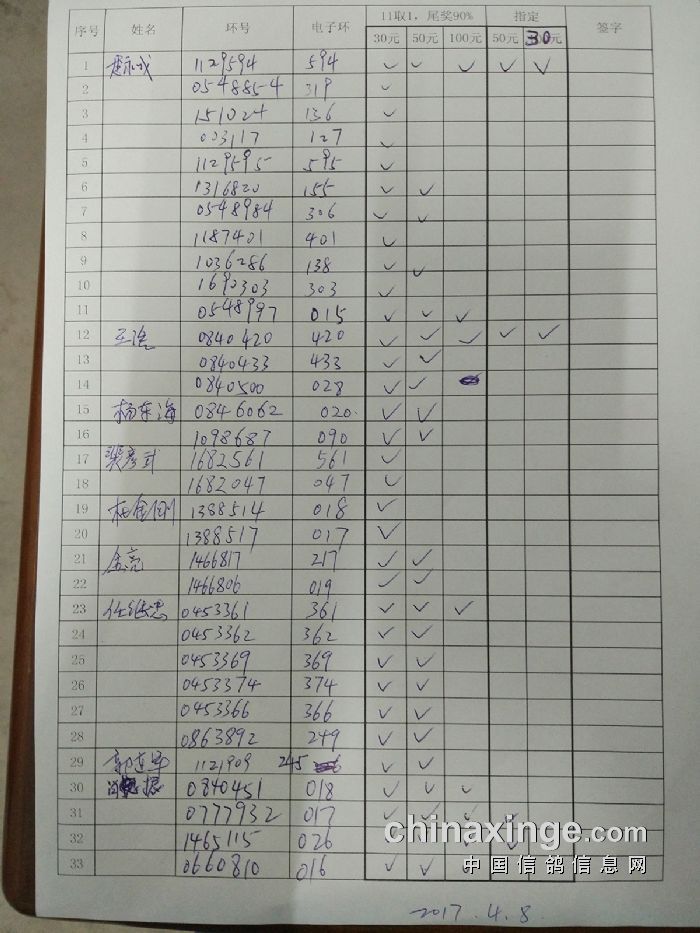 序号 姓名 环号 电子环 11取1，尾奖90% 指定 签字
30元 50元 100元 50元 30元
1 1129594 594 ✓ ✓ ✓ ✓ ✓
2 0548854 319 ✓
3 151024 136 ✓
4 003117 127 ✓
5 1129595 595 ✓
6 1316820 155 ✓ ✓
7 0548984 306 ✓ ✓
8 1187401 401 ✓
9 1036286 138 ✓ ✓
10 1690303 303 ✓
11 0548997 015 ✓ ✓ ✓
12 0840420 420 ✓ ✓ ✓ ✓ ✓
13 0840433 433 ✓ ✓
14 0840500 028 ✓ ✓
15 杨东海 0846062 020 ✓ ✓
16 1098687 090 ✓ ✓
17 裴彦武 1682561 561 ✓
18 1682047 047 ✓
19 1388514 018 ✓
20 1388517 017 ✓
21 金亮 1466817 217 ✓ ✓
22 1466806 019 ✓ ✓
23 0453361 361 ✓ ✓ ✓
24 0453362 362 ✓ ✓
25 0453369 369 ✓ ✓
26 0453374 374 ✓ ✓
27 0453366 366 ✓ ✓
28 0863892 249 ✓ ✓
29 1121909 245 ✓ ✓
30 振 0840451 018 ✓ ✓ ✓
31 0777932 017 ✓ ✓ ✓ ✓
32 1465115 026 ✓ ✓
33 0660810 016 ✓ ✓ ✓
chinaxinge.com
中国信鸽信息网
2017.4.8.